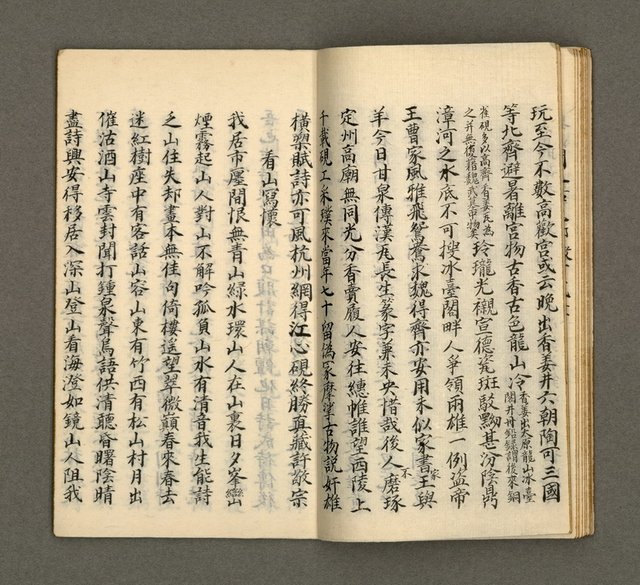 玩至今不數高歡宮或云晚出香姜井六朝陶可三國
等北齊避暑離宮物古香古色龍山冷香姜出太原龍山冰臺
閣井卅鉛錄謂後來銅
雀硯多以高齊香姜瓦為
之井無傳指魏武其帝物矣玲瓏光襯宣德瓷斑駁黝甚汾陰鼎
漳河之水底不可搜冰臺閣畔人爭領兩雄一例盜帝
王曹家風雅飛鴛鴦求魏得齊亦安用禾似家書王與
羊今日甘泉傳漢瓦長生篆字兼未央惜哉後人不磨琢
定州高廟無同光分香賣履人安往繐帷誰望西陵上
千載硯工采璞來當年七十留為冢摩挲古物說奸雄
橫槊賦詩亦可風杭州網得江心硯終勝真藏許敬宗
看山寫懷
我居市廛間恨無青山綠水環山人在山裏日夕峯巒
煙霧起山人對山不解吟孤負山水有清音我生能詩
乏山住失却畫本無佳句倚樓遥望翠微巔春來春去
迷紅樹座中有客話山容山東有竹西有松山村月出
催沽酒山寺雲封聞打鍾泉聲鳥語供清聽昏曙陰晴
盡詩興安得移居入深山登山看海澄如鏡山人阻我